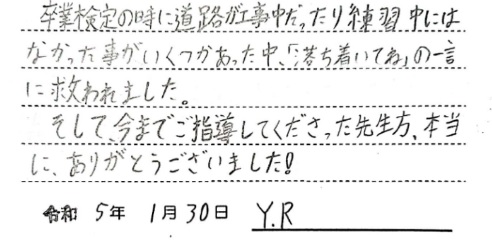 卒業検定の時に道路が工事中だったり練習中には
なかった事がいくつかあった中、「落ち着いてね」の一言
に救われました。
そして、今までご指導してくださった先生方、本当
に、ありがとうございました!
令和 5年 1月30日 Y.R